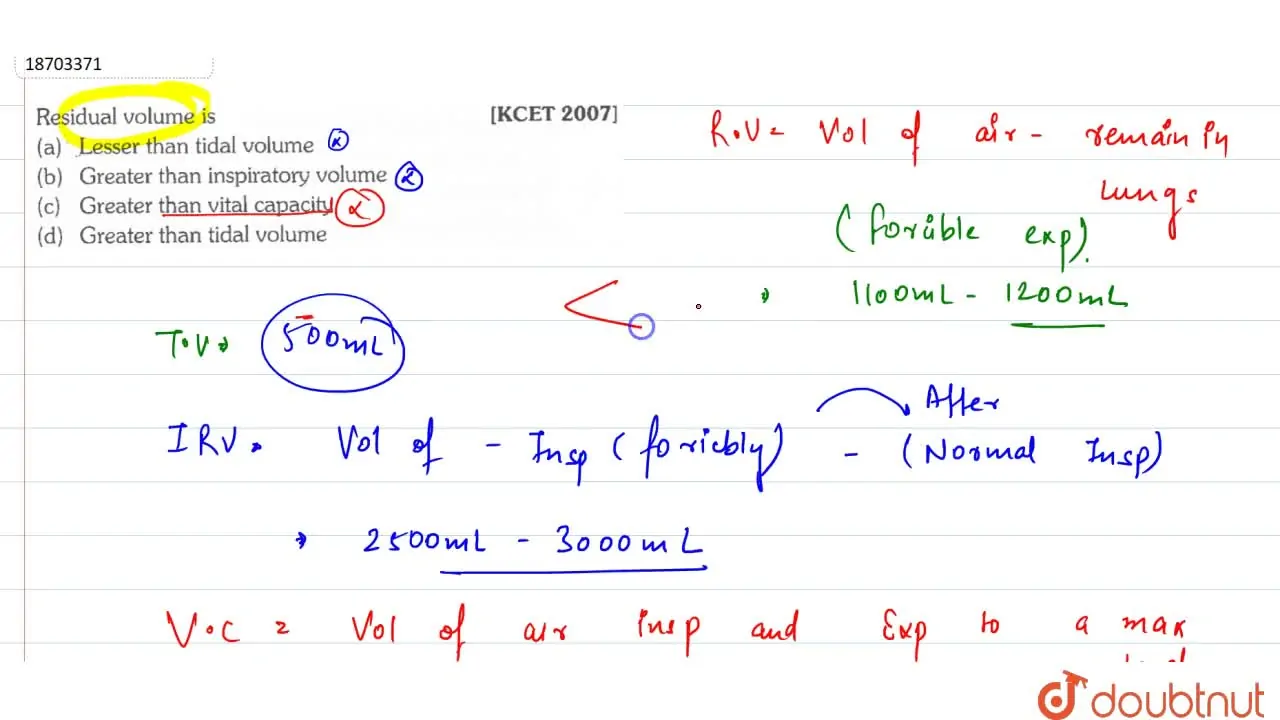 18703371
Residual volume is [KCET 2007]
(a) Lesser than tidal volume
(b) Greater than inspiratory volume
(c) Greater than vital capacity
(d) Greater than tidal volume
R.V = Vol of air - remain in
lungs
(forcible exp).
1100mL - 1200mL
T.V → 500mL
After
IRV = Vol of - Insp (foricbly) - (Normal Insp)
→ 2500mL - 3000mL
V.C = Vol of air insp and Exp to a max
doubtnut